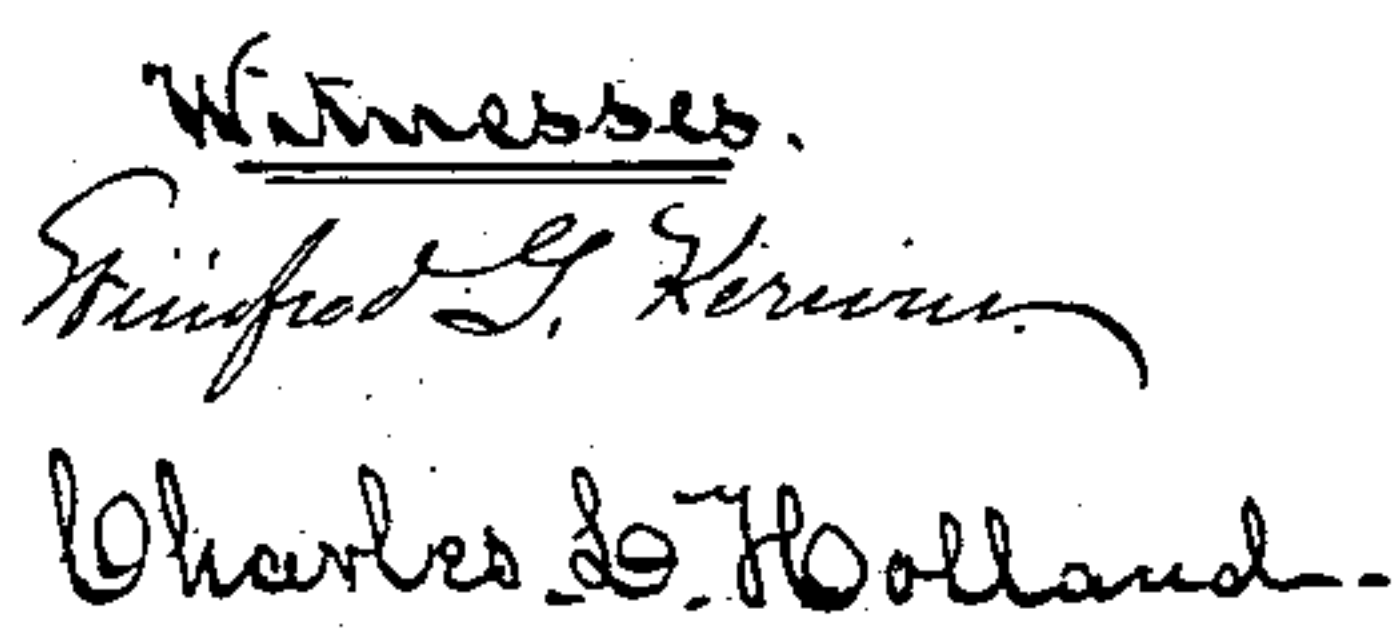 Witnesses.
Winfred G. Kerwin.
Charles L. Holland